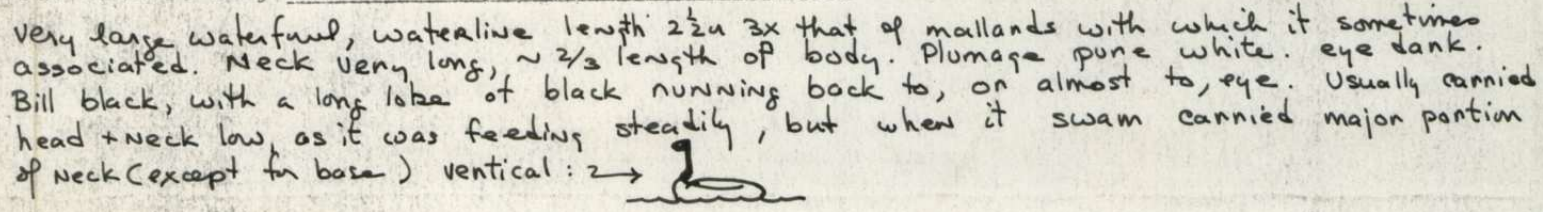 very large waterfowl, waterline length 2½ u 3x that of mallards with which it sometimes
associated. Neck very long, ~ 2/3 length of body. Plumage pure white. eye dark.
Bill black, with a long lobe of black running back to, or almost to, eye. Usually carried
head + neck low, as it was feeding steadily, but when it swam carried major portion
of neck (except for base) vertical :